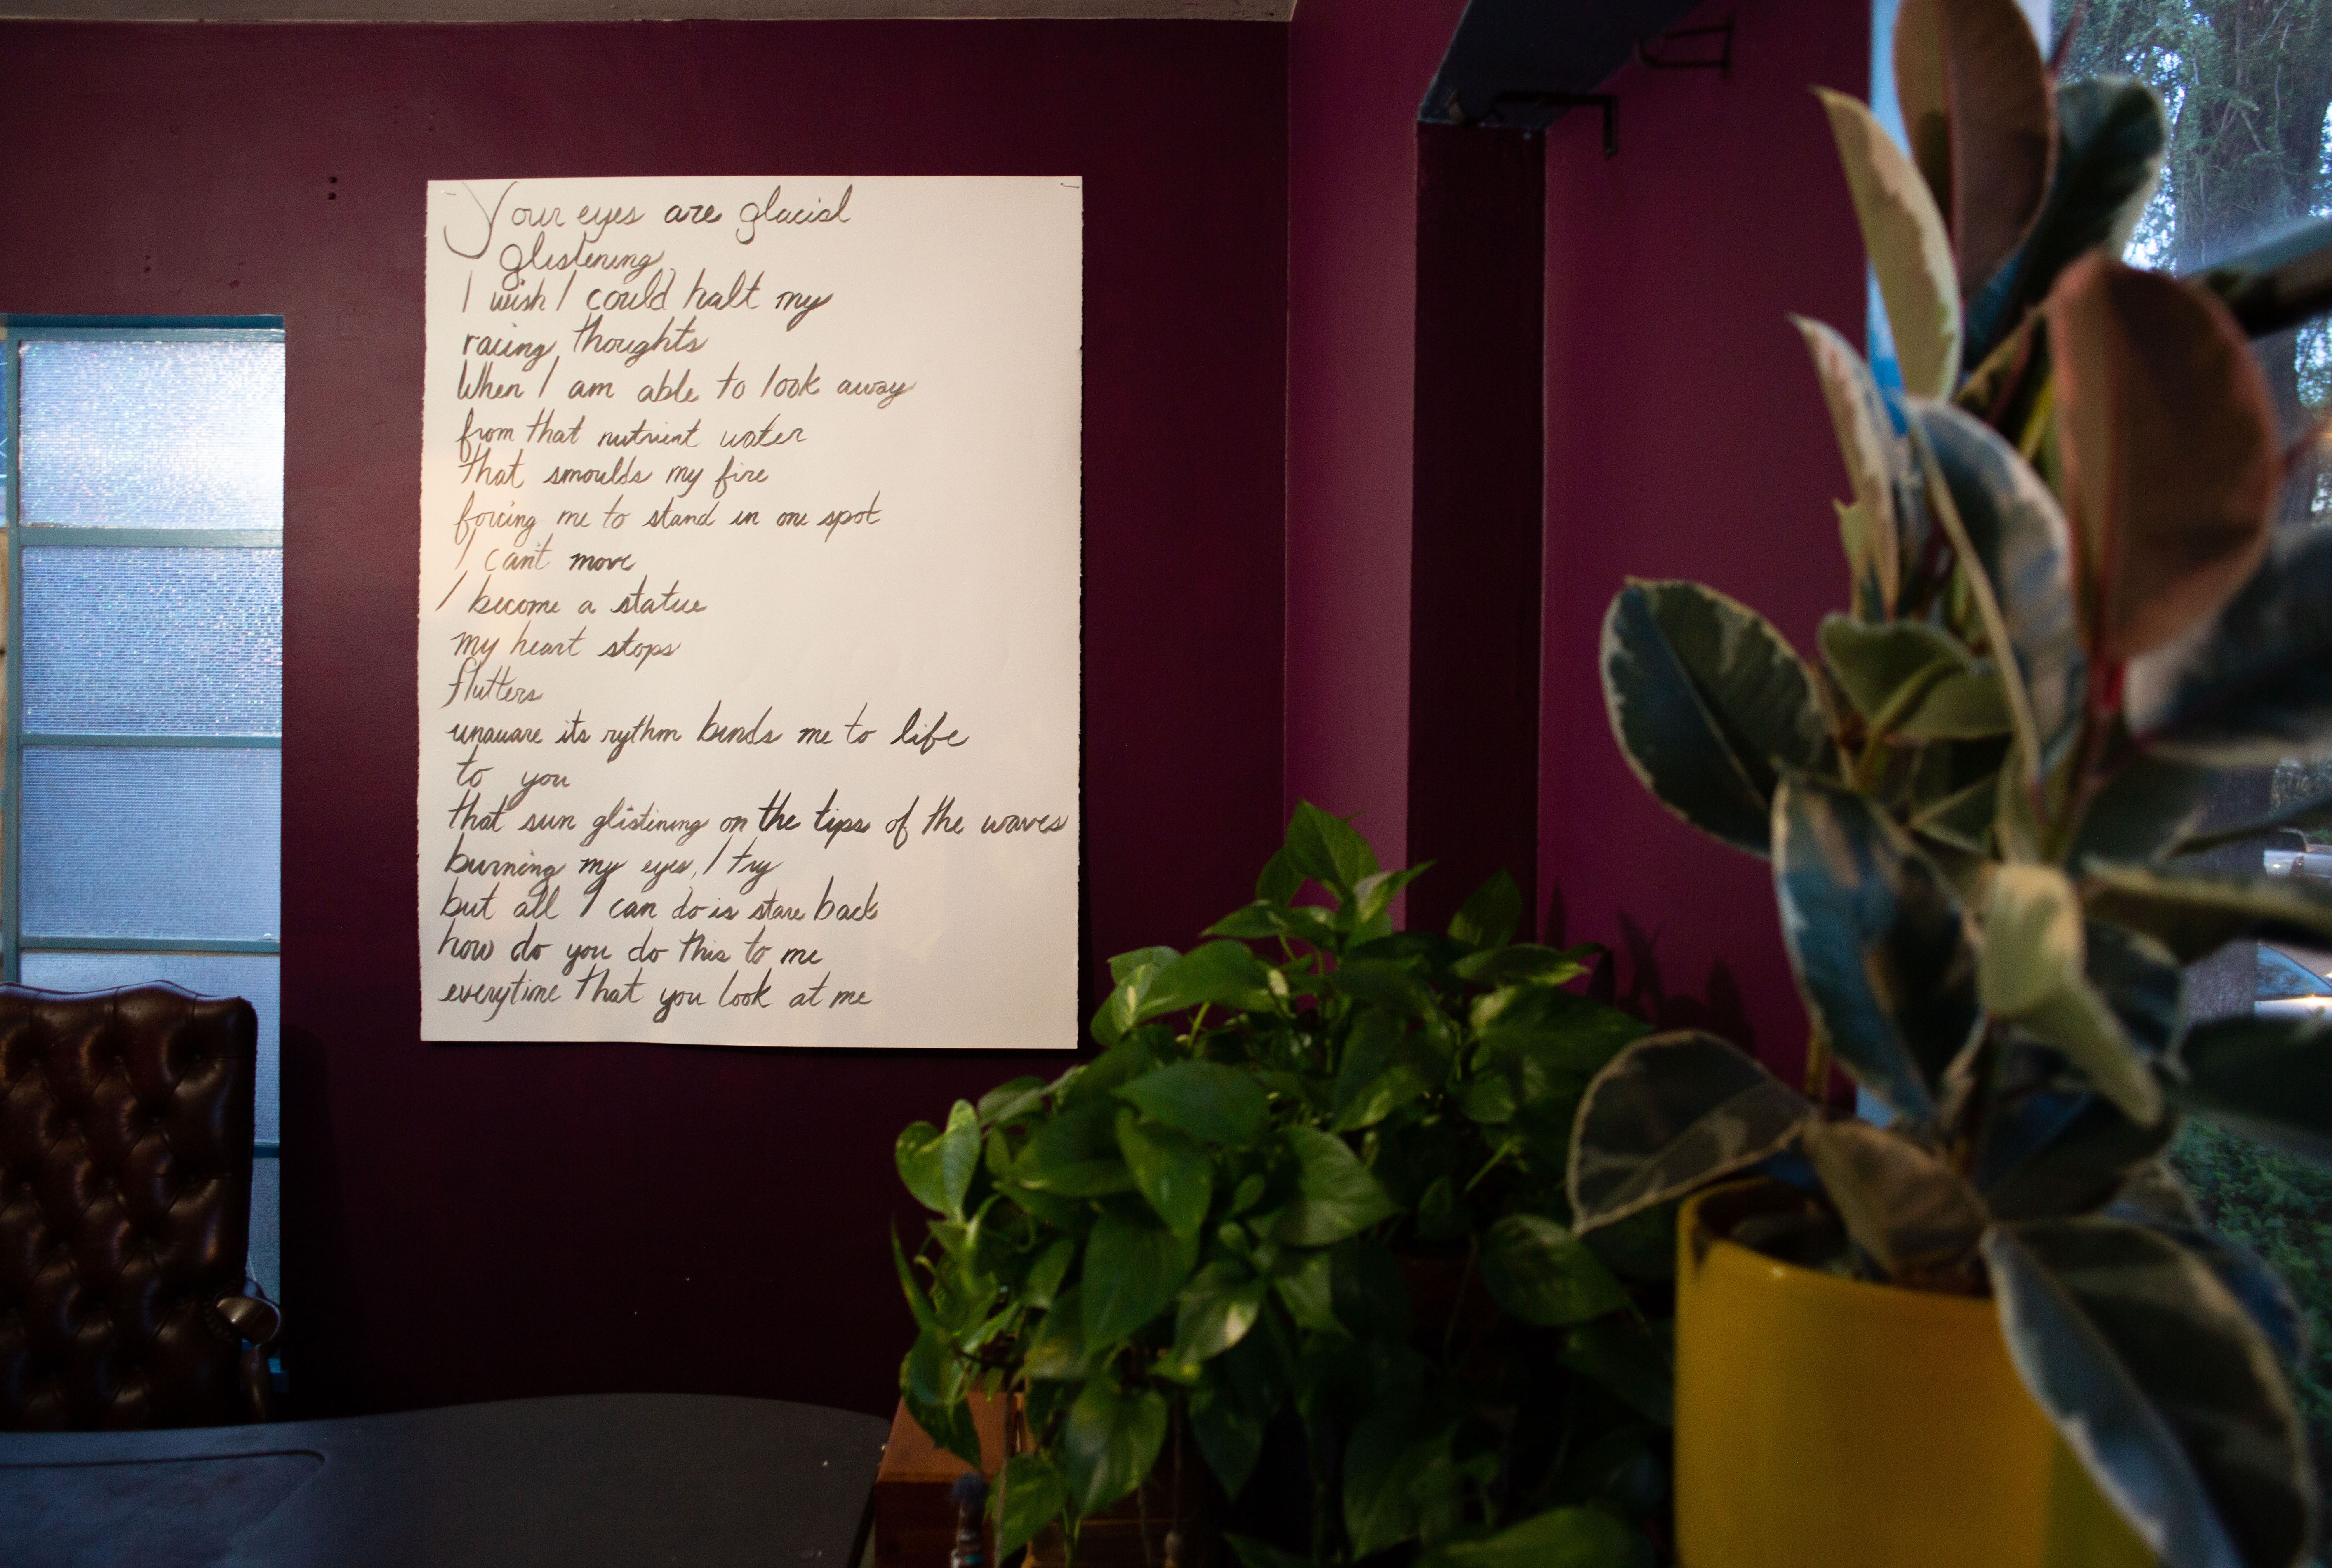 Your eyes are glacial
glistening
I wish I could halt my
racing thoughts
When I am able to look away
from that nutrient water
that smoulds my fire
forcing me to stand in one spot
I can't move
I become a statue
my heart stops
flutters
unaware its rythm binds me to life
to you
that sun glistening on the tips of the waves
burning my eyes, I try
but all I can do is stare back
how do you do this to me
everytime that you look at me